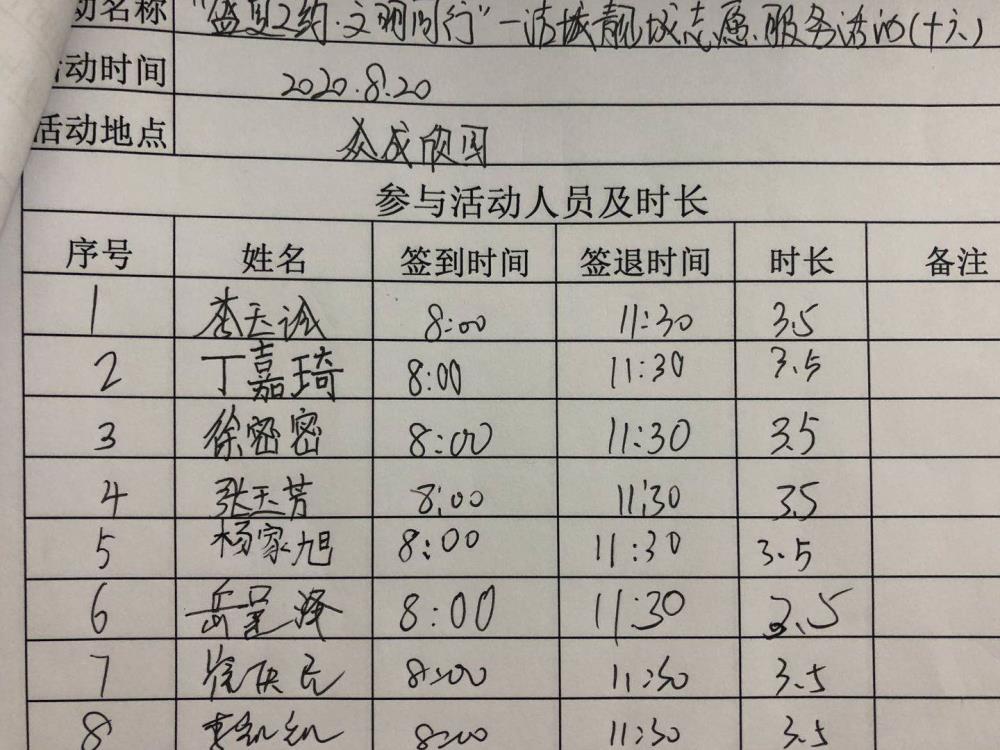 动名称 "盛夏之约·文明同行"—洁城靓城志愿服务活动(十六)
活动时间 2020.8.20
活动地点 众成欣园
参与活动人员及时长
序号 姓名 签到时间 签退时间 时长 备注
1 李玉诚 8:00 11:30 3.5
2 丁嘉琦 8:00 11:30 3.5
3 徐密密 8:00 11:30 3.5
4 张玉芳 8:00 11:30 3.5
5 杨家旭 8:00 11:30 3.5
6 岳 8:00 11:30 3.5
7 8:00 11:30 3.5
8 8:00 11:30 3.5